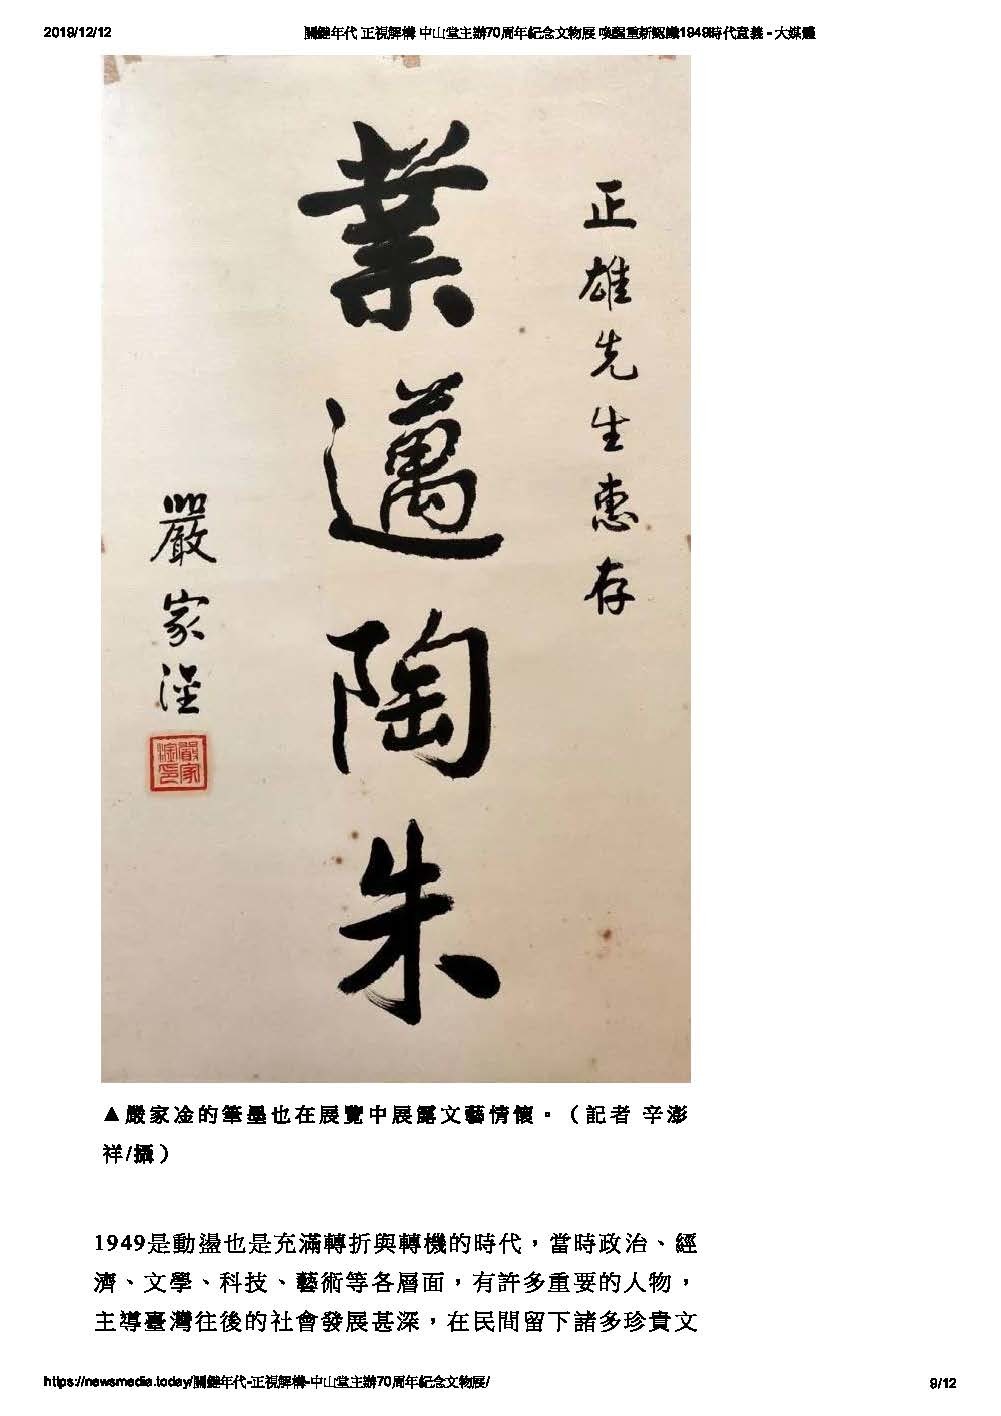 2019/12/12
關鍵年代 正視解構 中山堂主辦70周年紀念文物展 喚醒重新認識1949時代意義 - 大媒體
正雄先生惠存
業邁陶朱
嚴家淦
嚴家淦印
▲嚴家淦的筆墨也在展覽中展露文藝情懷。（記者 辛澎
祥/攝）
1949是動盪也是充滿轉折與轉機的時代，當時政治、經
濟、文學、科技、藝術等各層面，有許多重要的人物，
主導臺灣往後的社會發展甚深，在民間留下諸多珍貴文
https://newsmedia.today/關鍵年代-正視解構-中山堂主辦70周年紀念文物展/
9/12